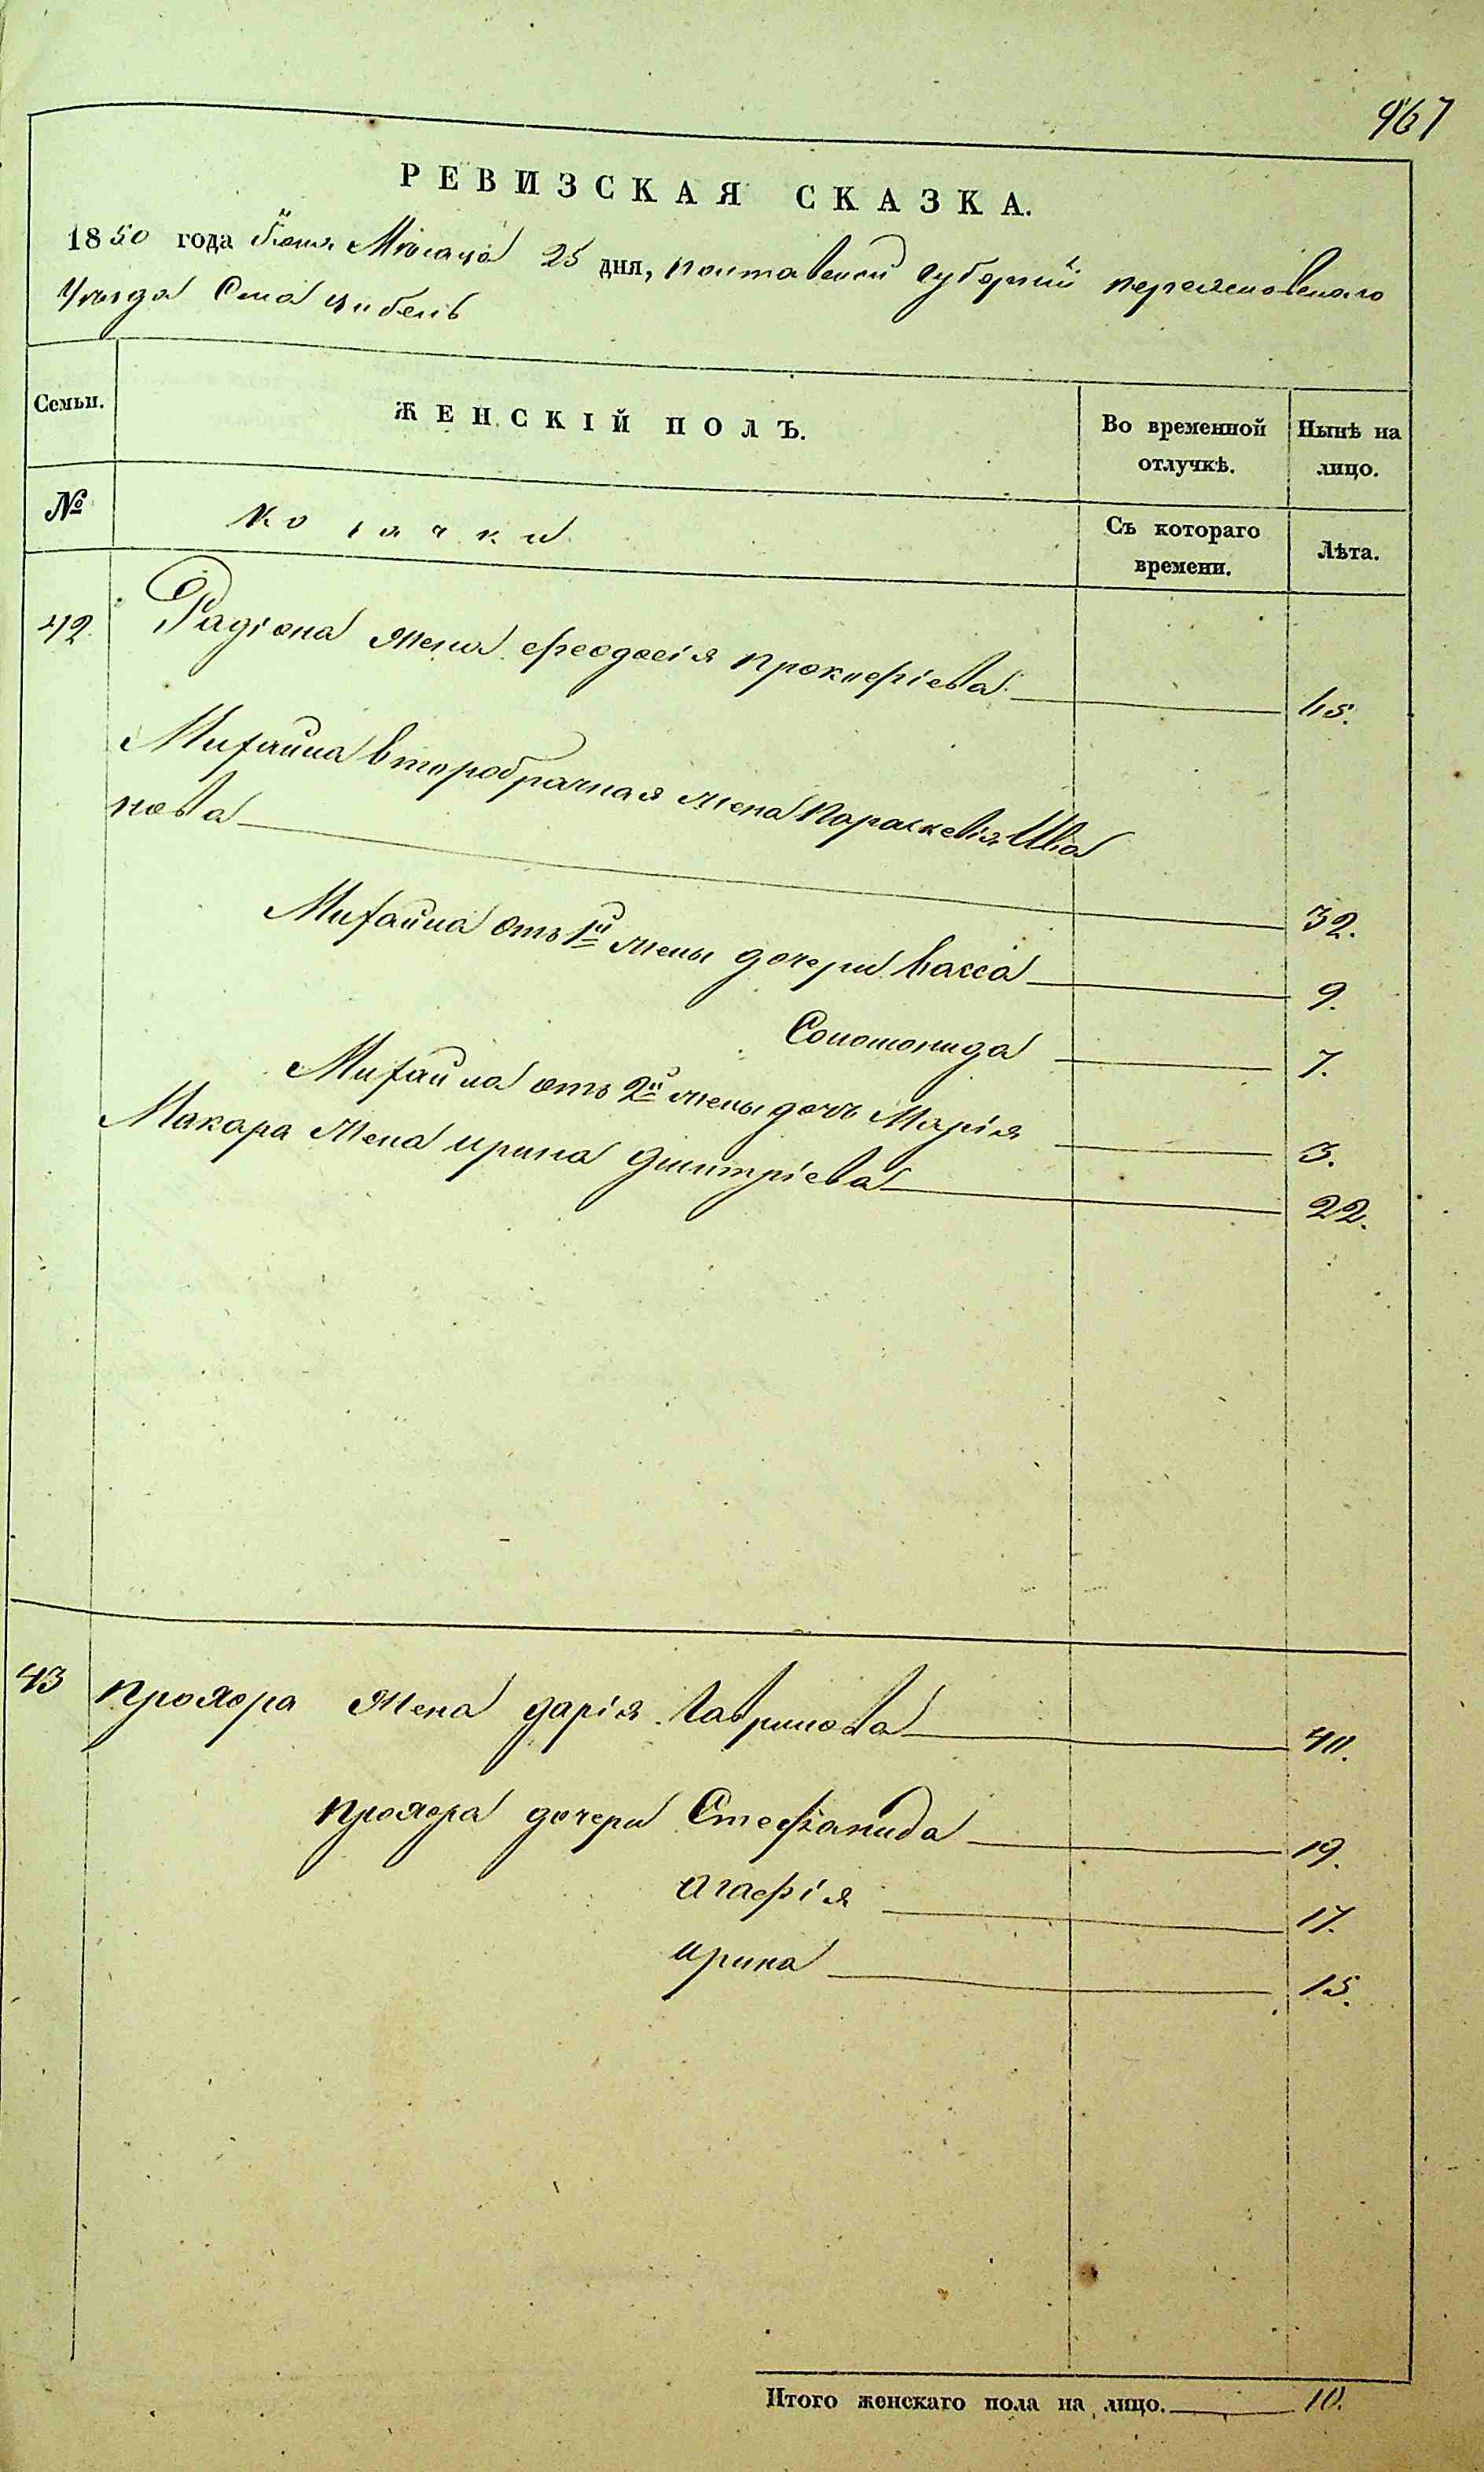 967
РЕВИЗСКАЯ СКАЗКА.
1850 года Іюля Мѣсяца 25 дня, Полтавской Губерніи Переяславскаго
Уѣзда Села Цибель
Семьи.
ЖЕНСКІЙ ПОЛЪ.
Во временной отлучкѣ.
Нынѣ на лицо.
№
Козачки
Съ котораго времени.
Лѣта.
42. Радіона жена Феодосія Прокпефіева 45.
Михаила второбрачная жена Параскевія Ива
нова 32.
Михаила отъ 1й жены дочери Васса 9.
Соломонида 7.
Михаила отъ 2й жены дочь Марія 3.
Макара жена Ирина Дмитріева 22.
43 Прохора жена Дарія Гаврилова 40.
Прохора дочери Стефанида 19.
Агафія 17.
Ирина 15.
Итого женскаго пола на лицо. 10.